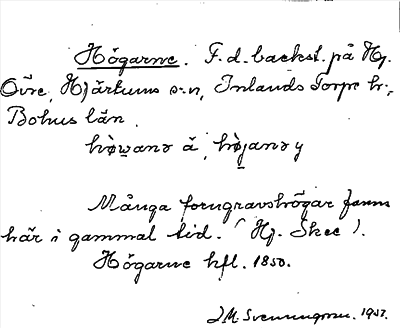 Högarne. F.d. backst. på Hj.
Övre, Hjärtums s:n, Inlands Torpe hr.,
Bohus län.
hòwanə å, hòjanə y
Många forngravshögar fanns
här i gammal tid. (Hj. Skee).
Högarne hfl. 1850.
J.M. Svenningson. 1937.